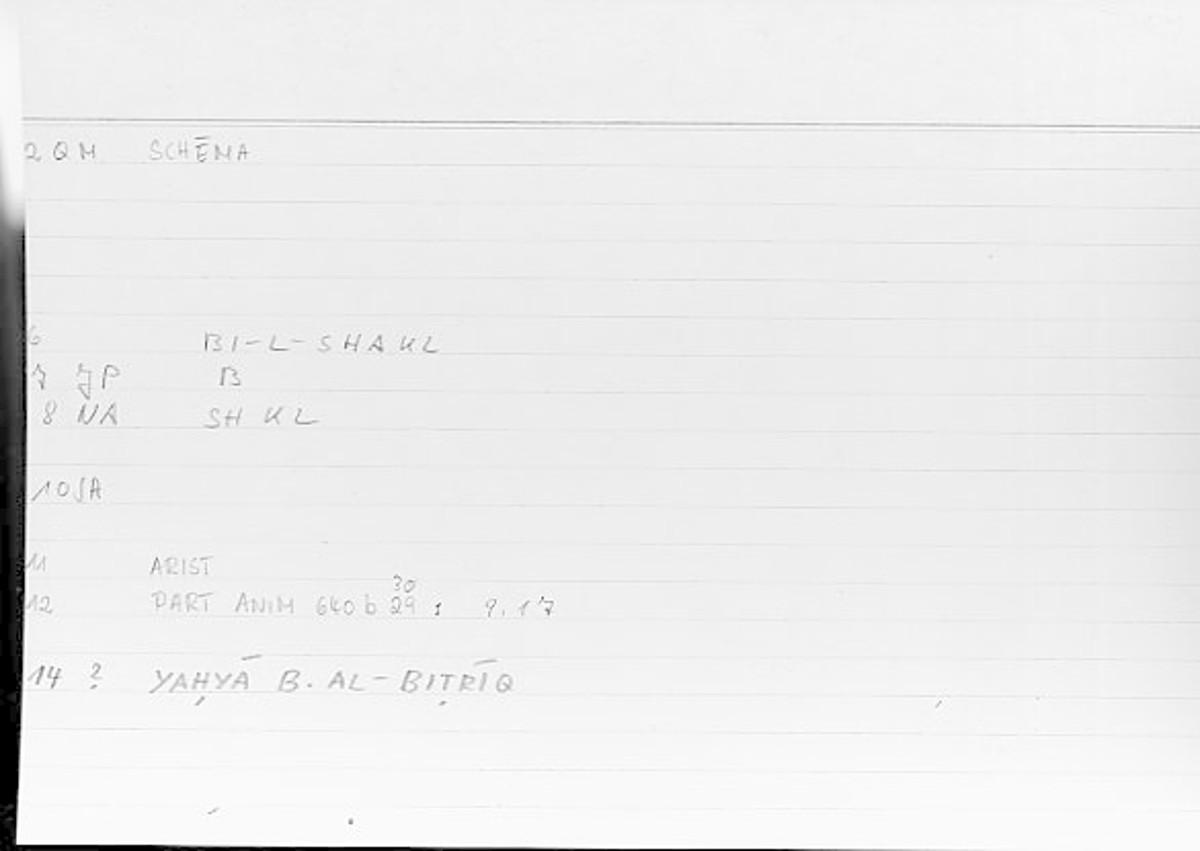 2 QM SCHĒMA
6 BI-L-SHAKL
7 JP B
8 NA SH KL
10 SA
11 ARIST
30
12 PART ANIM 640 b 29 : 9.17
14 ? YAḤYĀ B. AL-BIṬRĪQ